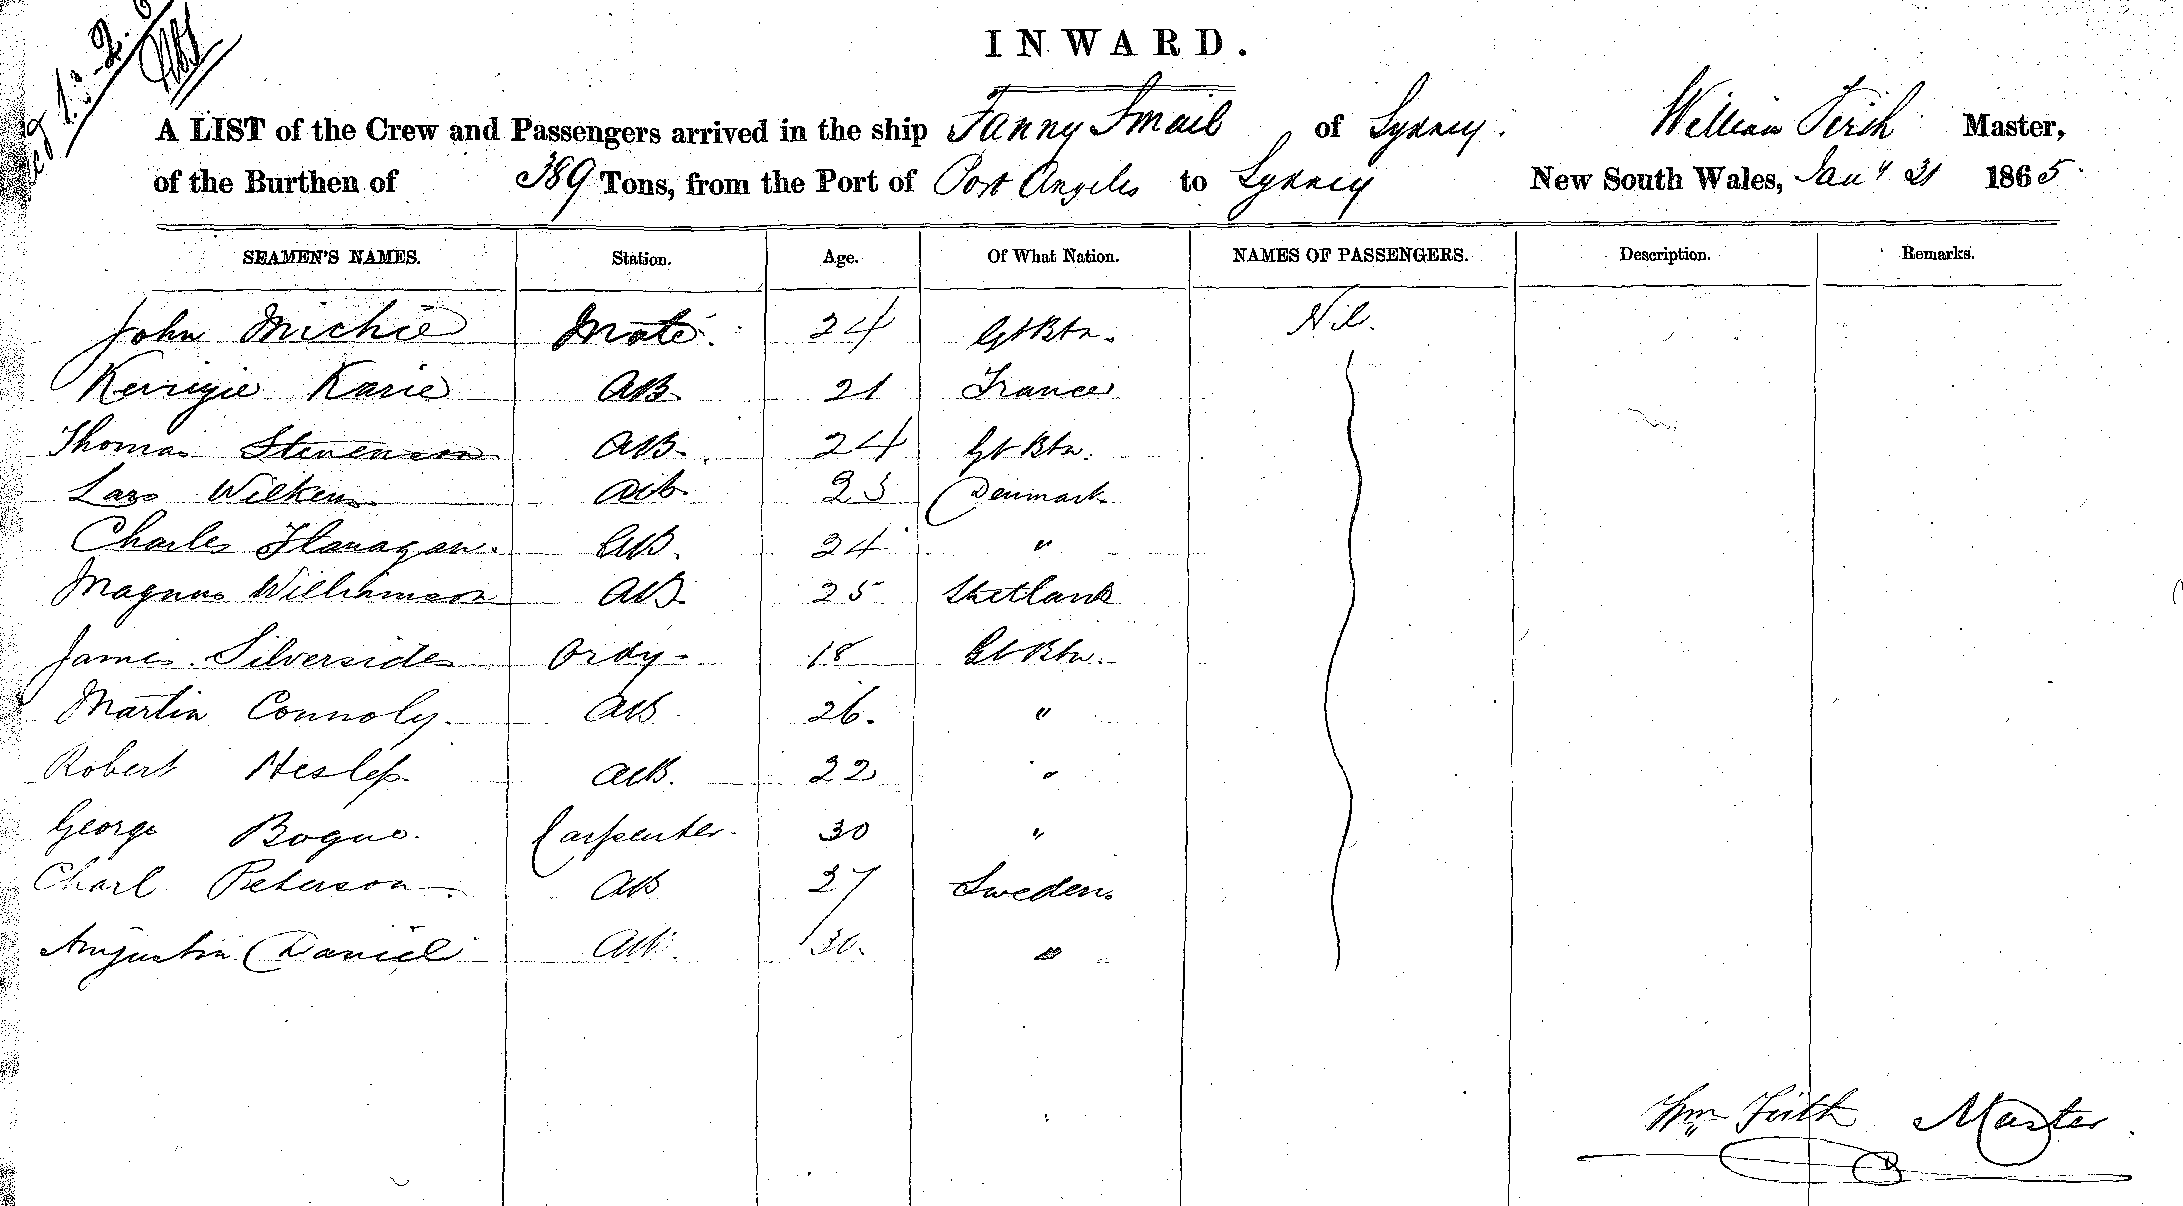 INWARD.
A LIST of the Crew and Passengers arrived in the ship Fanny Smail of Sydney. William Firth Master,
of the Burthen of 389 Tons, from the Port of Port Angeles to Sydney New South Wales, Jany 21 1865.
SEAMEN'S NAMES. Station. Age. Of What Nation. NAMES OF PASSENGERS. Description. Remarks.
John Michie Mate. 24 Gt Btn. Nil.
Karie AB 21 France
Thomas Stevenson AB. 24 Gt Btn.
Lars Wilkens AB 23 Denmark
Charles Flanagan. AB. 24 "
Magnus Williamson AB 25 Shetland
James Silverside Ordy. 18 Gt Btn.
Martin Connoly. AB 26. "
Robert Heslep AB. 22 "
George Bogue. Carpenter. 30 "
Charl Peterson. AB 27 Sweden.
Augustin Daniel AB. 30. "
Wm Firth Master